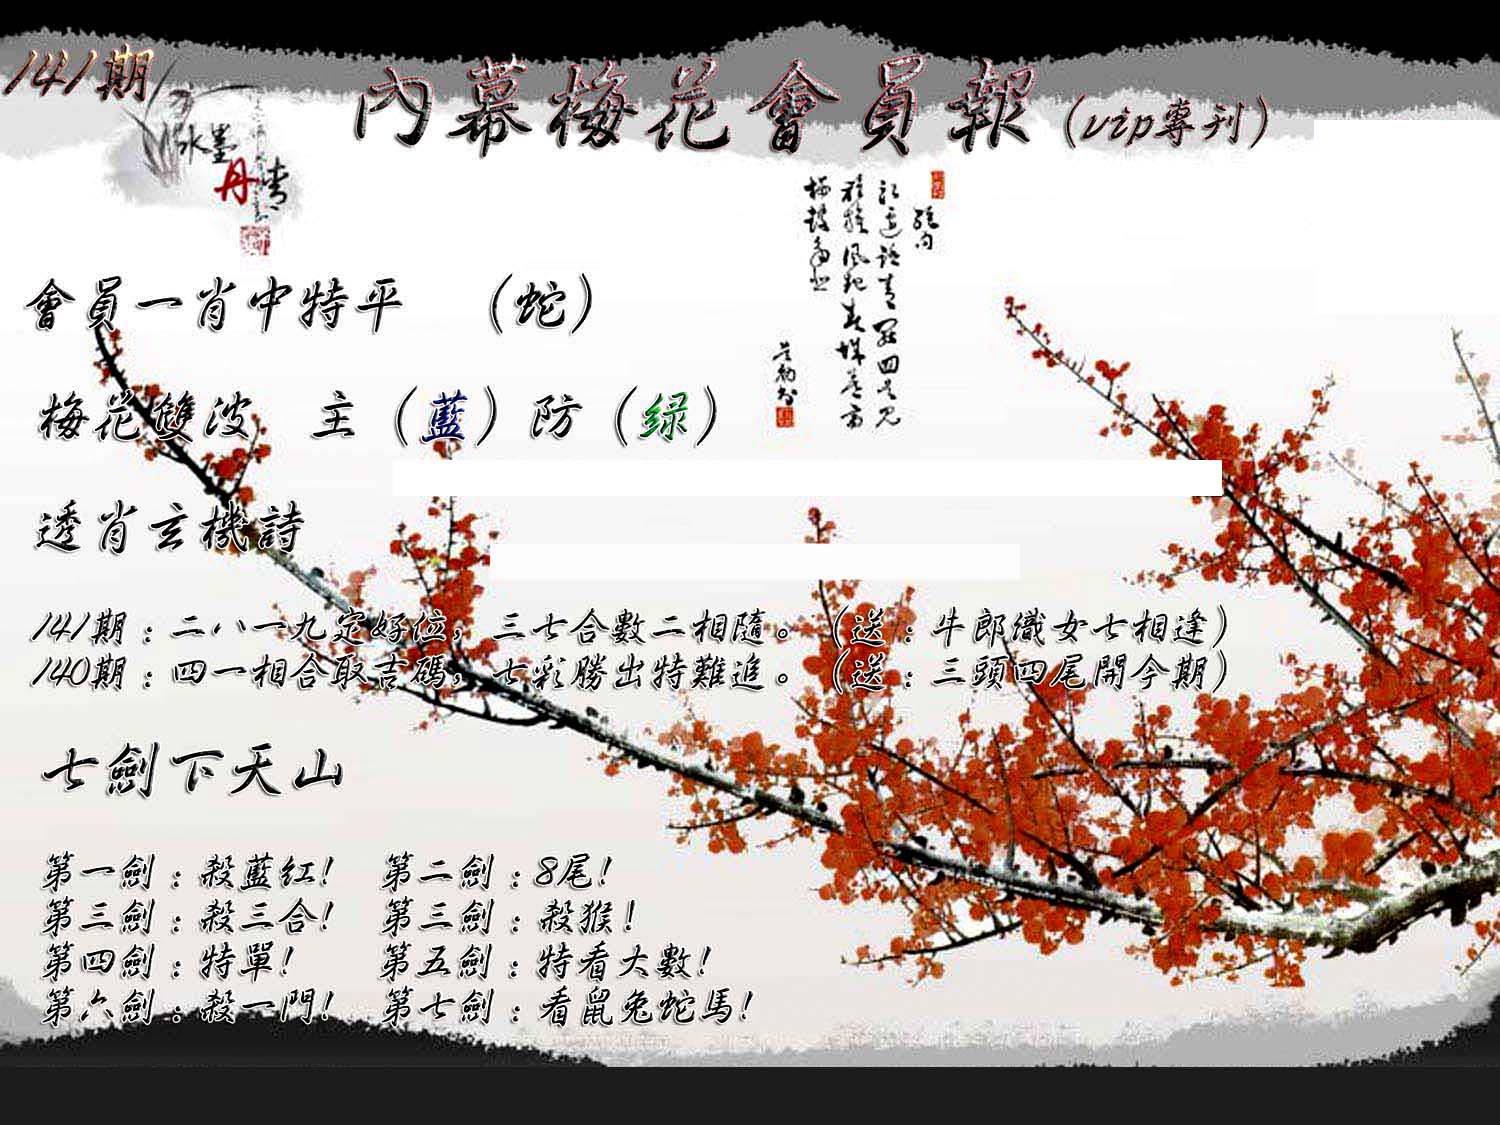 141期
內幕梅花會員報（vip專刊）
水墨
丹青
絕句
會員一肖中特平　（蛇）
梅花雙波　主（藍）防（绿）
透肖玄機詩
141期：二八一九定好位，三七合數二相隨。（送：牛郎織女七相逢）
140期：四一相合取吉碼，七彩勝出特難追。（送：三頭四尾開今期）
七劍下天山
第一劍：殺藍红！　第二劍：8尾！
第三劍：殺三合！　第三劍：殺猴！
第四劍：特單！　第五劍：特看大數！
第六劍：殺一門！　第七劍：看鼠兔蛇馬！